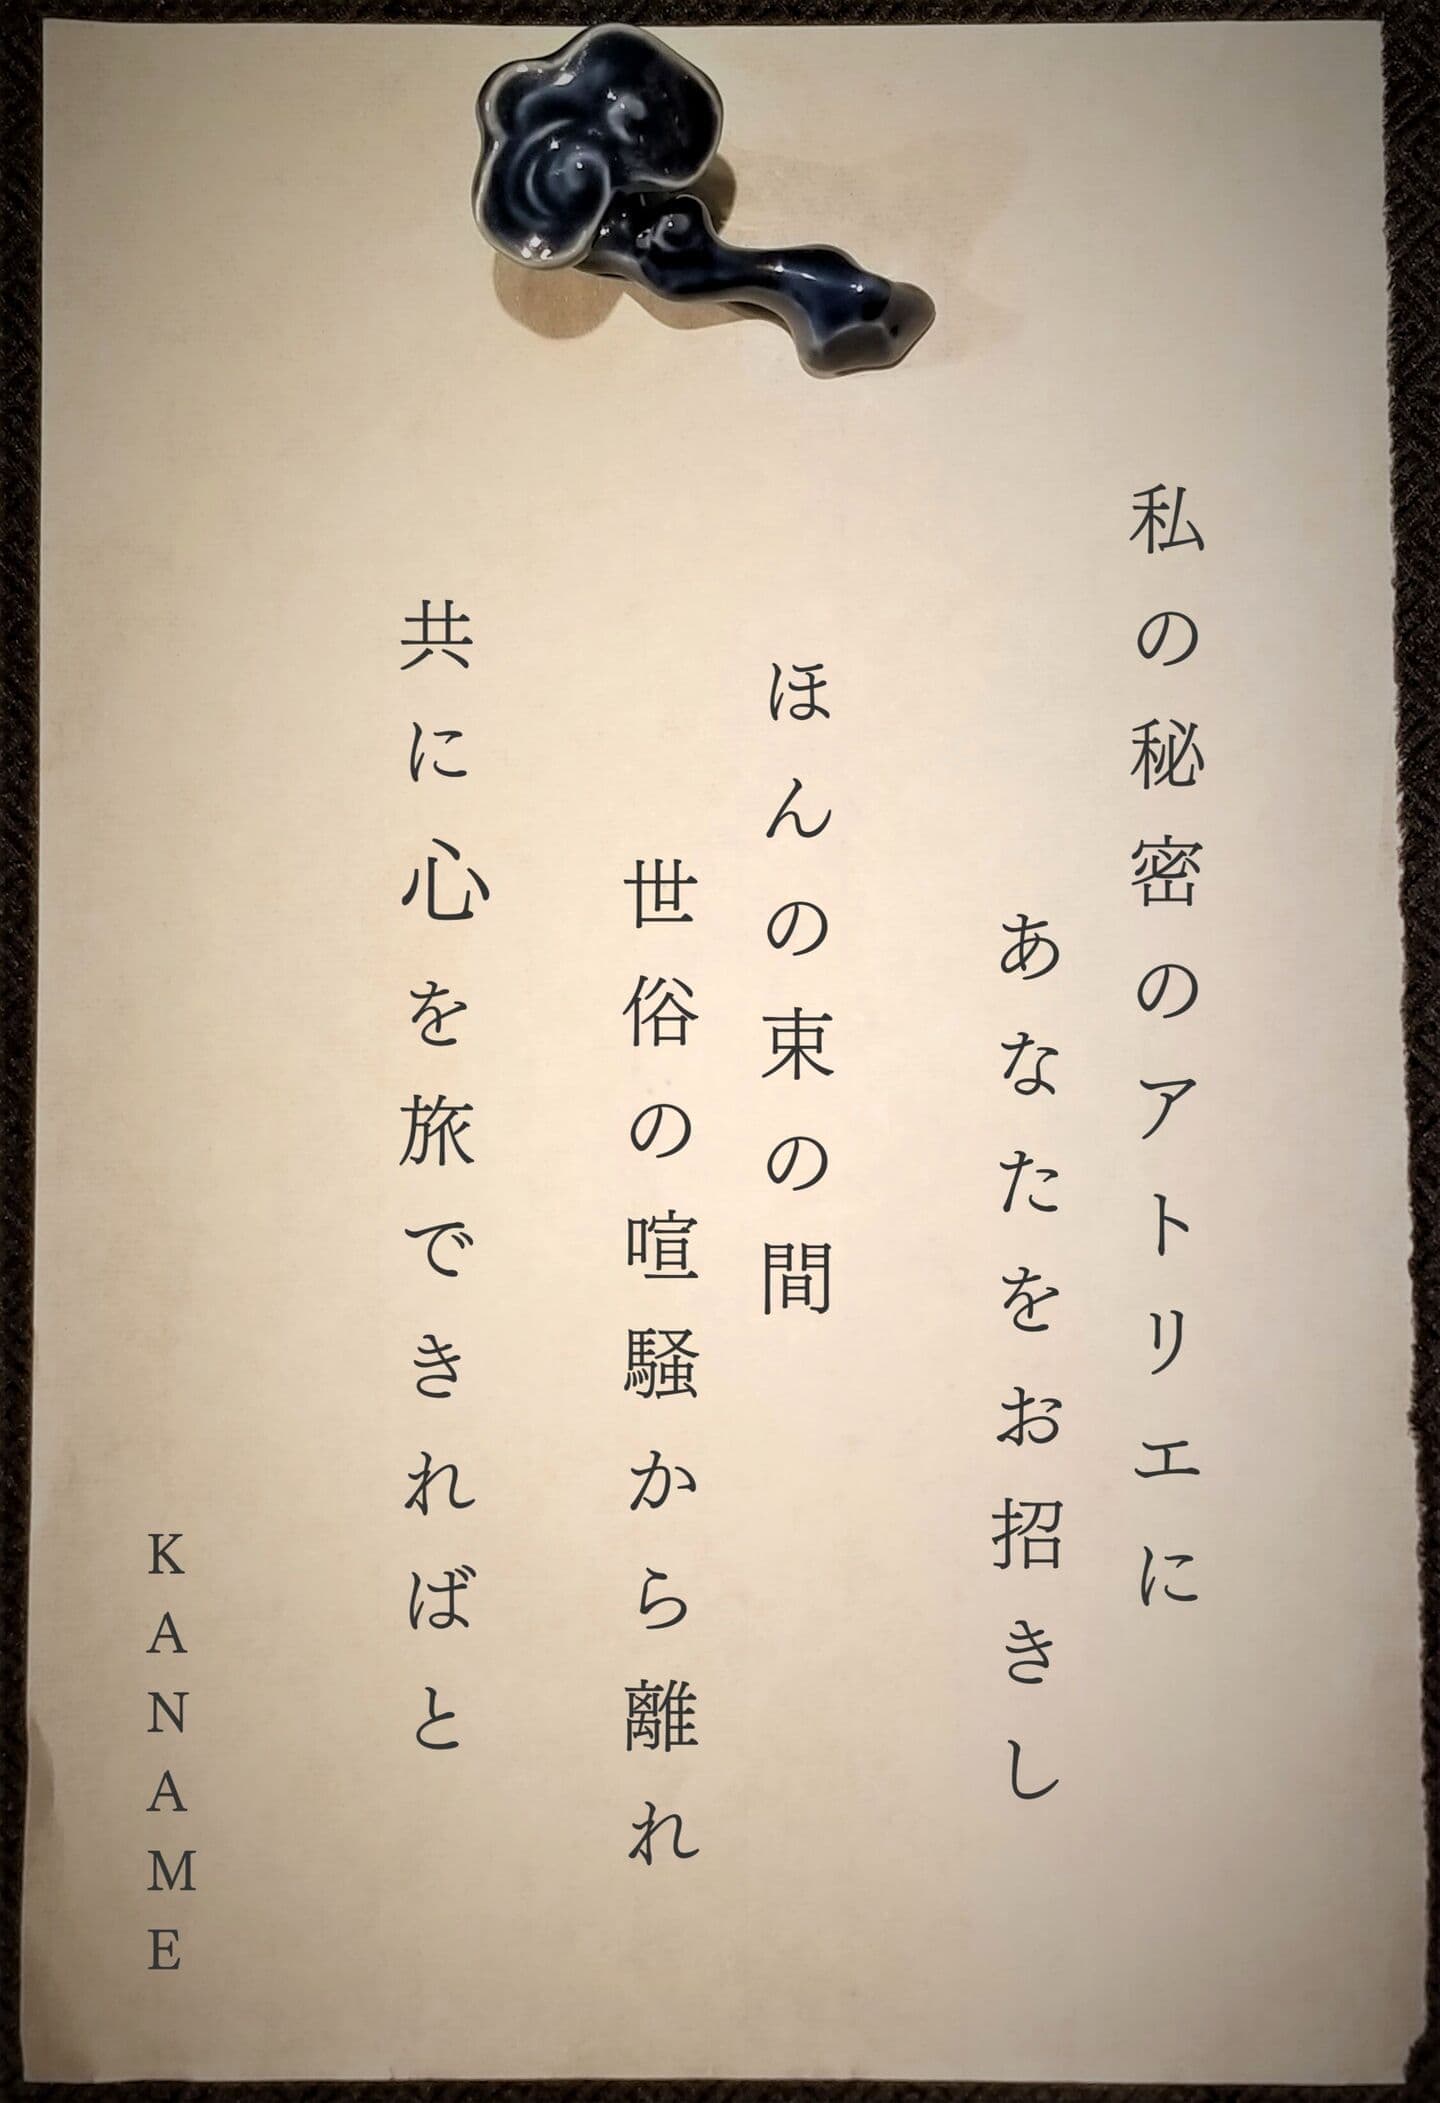 私の秘密のアトリエに
あなたをお招きし
ほんの束の間
世俗の喧騒から離れ
共に心を旅できればと
KANAME